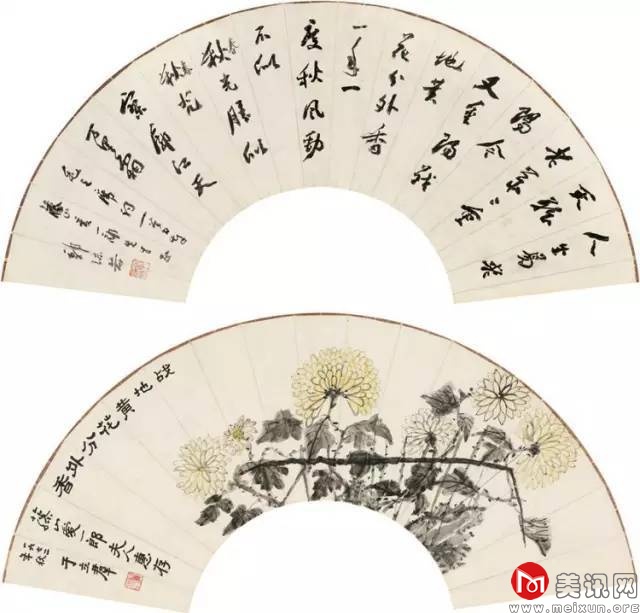 人生易老
天难
老岁岁重
阳今
又重阳战
地黄
花分外香
一年一
度秋风劲
不似
春光胜似
春光
寥廓江天
万里霜
毛主席词一首书为
藤山爱一郎先生
郭沫若
战地黄花分外香
藤山爱一郎夫人惠存
于立群
美讯网
www.meixun.org